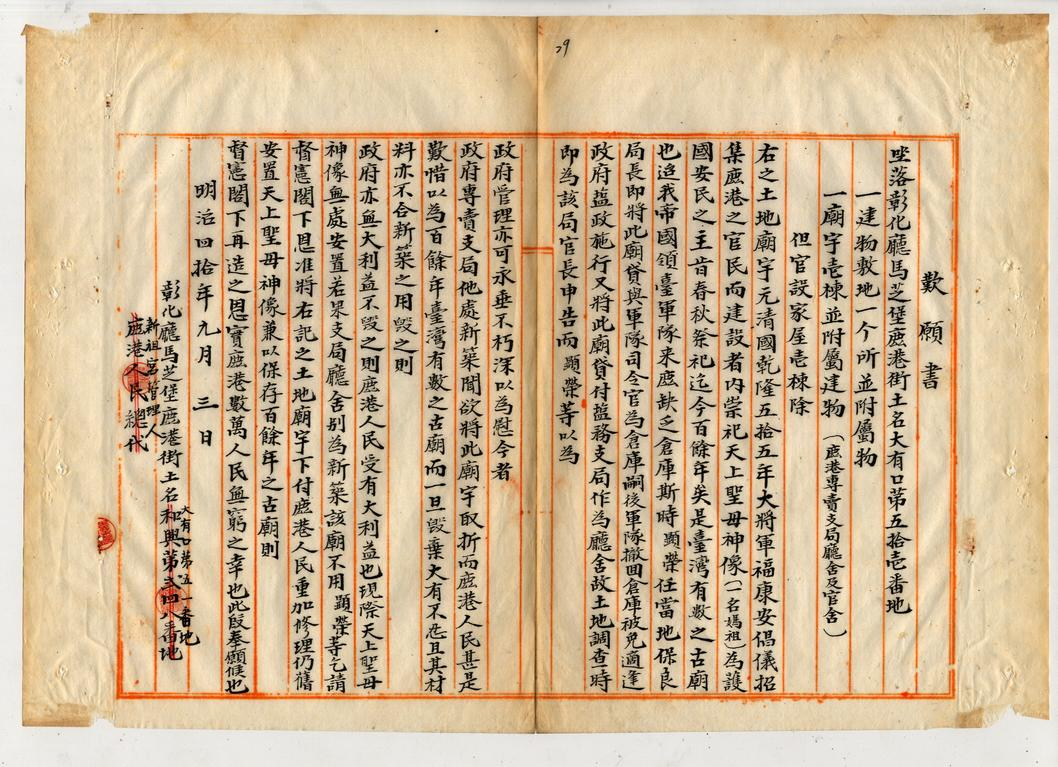 29
歎願書
坐落彰化廳馬芝堡鹿港街土名大有口第五拾壱番地
一建物敷地一个所並附屬物
一廟宇壱棟並附屬建物（鹿港專賣支局廳舍及官舍）
但官設家屋壱棟除
右之土地廟宇元清國乾隆五拾五年大將軍福康安倡儀招
集鹿港之官民而建設者内崇祀天上聖母神像（一名媽祖）為護
國安民之主旨春秋祭祀迄今百餘年矣是臺灣有数之古廟
也迨我帝國領臺軍隊来鹿缺乏倉庫斯時顕榮任當地保良
局長即將此廟貸與軍隊司令官為倉庫嗣後軍隊撤回倉庫被免適逢
政府塩政施行又將此廟貸付塩務支局作為廳舍故土地調查時
即為該局官長申告而顕榮等以為
政府管理亦可永垂不朽深以為慰今者
政府專賣支局他處新築聞欲將此廟宇取折而鹿港人民甚是
歎惜以為百餘年臺灣有数之古廟而一旦毀棄大有不忍且其材
料亦不合新築之用毀之則
政府亦無大利益不毀之則鹿港人民受有大利益也現際天上聖母
神像無處安置若果支局廳舍別為新築該廟不用顕榮等乞請
督憲閣下恩准將右記之土地廟宇下付鹿港人民重加修理仍舊
安置天上聖母神像兼以保存百餘年之古廟則
督憲閣下再造之恩實鹿港数萬人民無窮之幸也此段奉願候也
明治四拾年九月三日
大有口第五一番地
彰化廳馬芝堡鹿港街土名和興第弐四八番地
新祖宮管理人
鹿港人民總代